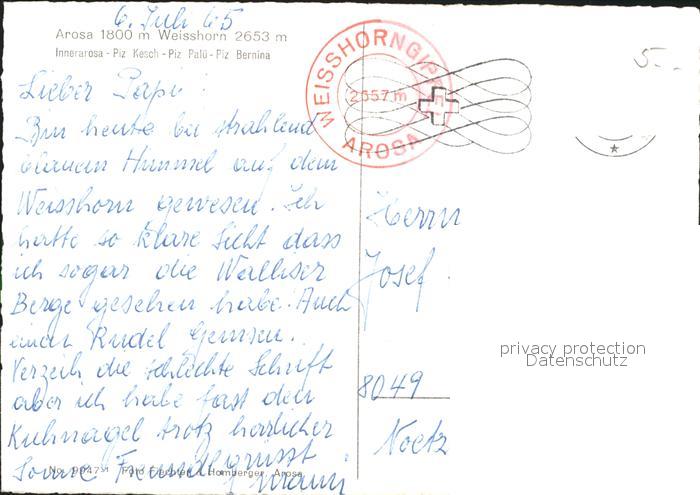 6. Juli 65
Arosa 1800 m Weisshorn 2653 m
Innerarosa - Piz Kesch - Piz Palü - Piz Bernina
5.-
WEISSHORNGIPFEL
2657 m
AROSA
Lieber Papi!
Bin heute bei strahlend
blauem Himmel auf dem
Weisshorn gewesen. Ich
hatte so klare Sicht dass
ich sogar die Walliser
Berge gesehen habe. Auch
einen Rudel Gemsen.
Verzeih die schlechte Schrift
aber ich habe fast den
Kuhnagel trotz herrlicher
Sonne. Freundl. grüsst
Herrn
Josef
8049
privacy protection
Datenschutz
No. 9047 Foto Homberger, Arosa